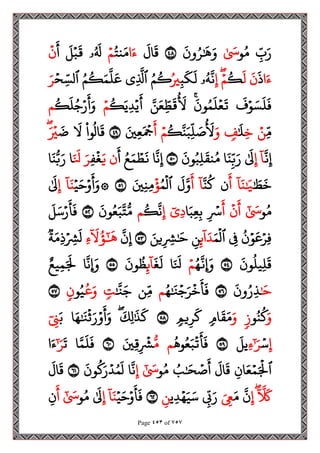 رَبِّ مُوسَىٰ وَهَٰرُونَ ٤٨ قَالَ ءَامَنتُمْ لَهُۥ قَبْلَ أَنْ
ءَاذَنَ لَكُمْ ۖ إِنَّهُۥ لَكَبِيرُكُمُ ٱلَّذِى عَلَّمَكُمُ ٱلسِّحْرَ
فَلَسَوْفَ تَعْلَمُونَ ۚ لَأُقَطِّعَنَّ أَيْدِيَكُمْ وَأَرْجُلَكُم
مِّنْ خِلَٰفٍ وَلَأُصَلِّبَنَّكُمْ أَجْمَعِينَ ٤٩ قَالُوا۟ لَا ضَيْرَ ۖ
إِنَّآ إِلَىٰ رَبِّنَا مُنقَلِبُونَ ٥٠ إِنَّا نَطْمَعُ أَن يَغْفِرَ لَنَا رَبُّنَا
خَطَٰيَٰنَآ أَن كُنَّآ أَوَّلَ ٱلْمُؤْمِنِينَ ٥١ ۞ وَأَوْحَيْنَآ إِلَىٰ
مُوسَىٰٓ أَنْ أَسْرِ بِعِبَادِىٓ إِنَّكُم مُّتَّبَعُونَ ٥٢ فَأَرْسَلَ
فِرْعَوْنُ فِى ٱلْمَدَآئِنِ حَٰشِرِينَ ٥٣ إِنَّ هَٰٓؤُلَآءِ لَشِرْذِمَةٌ
قَلِيلُونَ ٥٤ وَإِنَّهُمْ لَنَا لَغَآئِظُونَ ٥٥ وَإِنَّا لَجَمِيعٌ
حَٰذِرُونَ ٥٦ فَأَخْرَجْنَٰهُم مِّن جَنَّٰتٍ وَعُيُونٍ ٥٧
وَكُنُوزٍ وَمَقَامٍ كَرِيمٍ ٥٨ كَذَٰلِكَ ۖ وَأَوْرَثْنَٰهَا بَنِىٓ
إِسْرَٰٓءِيلَ ٥٩ فَأَتْبَعُوهُم مُّشْرِقِينَ ٦٠ فَلَمَّا تَرَٰٓءَا
ٱلْجَمْعَانِ قَالَ أَصْحَٰبُ مُوسَىٰٓ إِنَّا لَمُدْرَكُونَ ٦١ قَالَ
كَلَّآ ۖ إِنَّ مَعِىَ رَبِّى سَيَهْدِينِ ٦٢ فَأَوْحَيْنَآ إِلَىٰ مُوسَىٰٓ أَنِ
Page ٤٥٣ of ٧٥٧